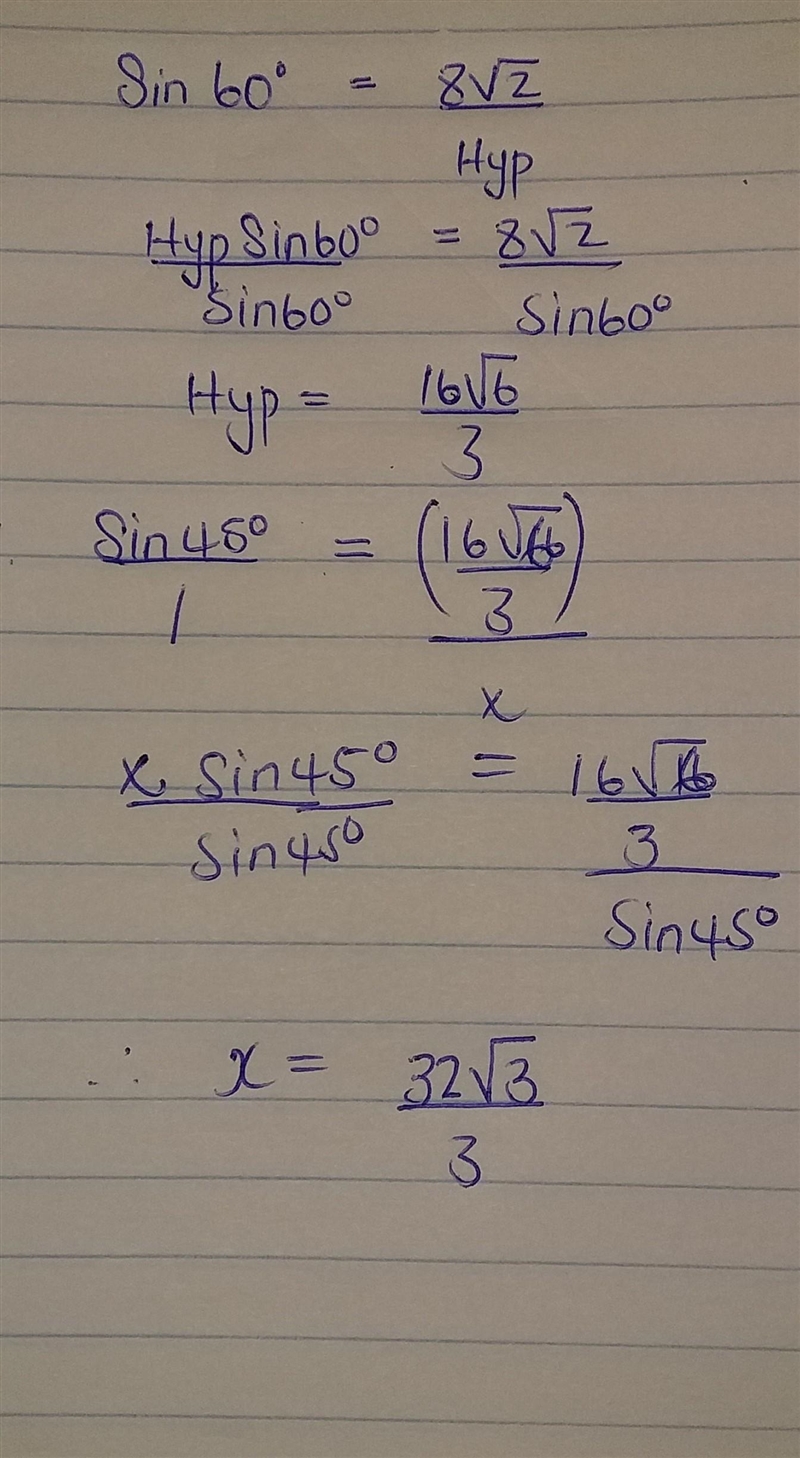 Sin 60° = 8√2
Hyp
Hyp Sin60° = 8√2
Sin60° Sin60°
Hyp = 16√6
3
Sin 45° = (16√6
1 3)
x
x Sin45° = 16√6
Sin45° 3
Sin45°
∴ x = 32√3
3